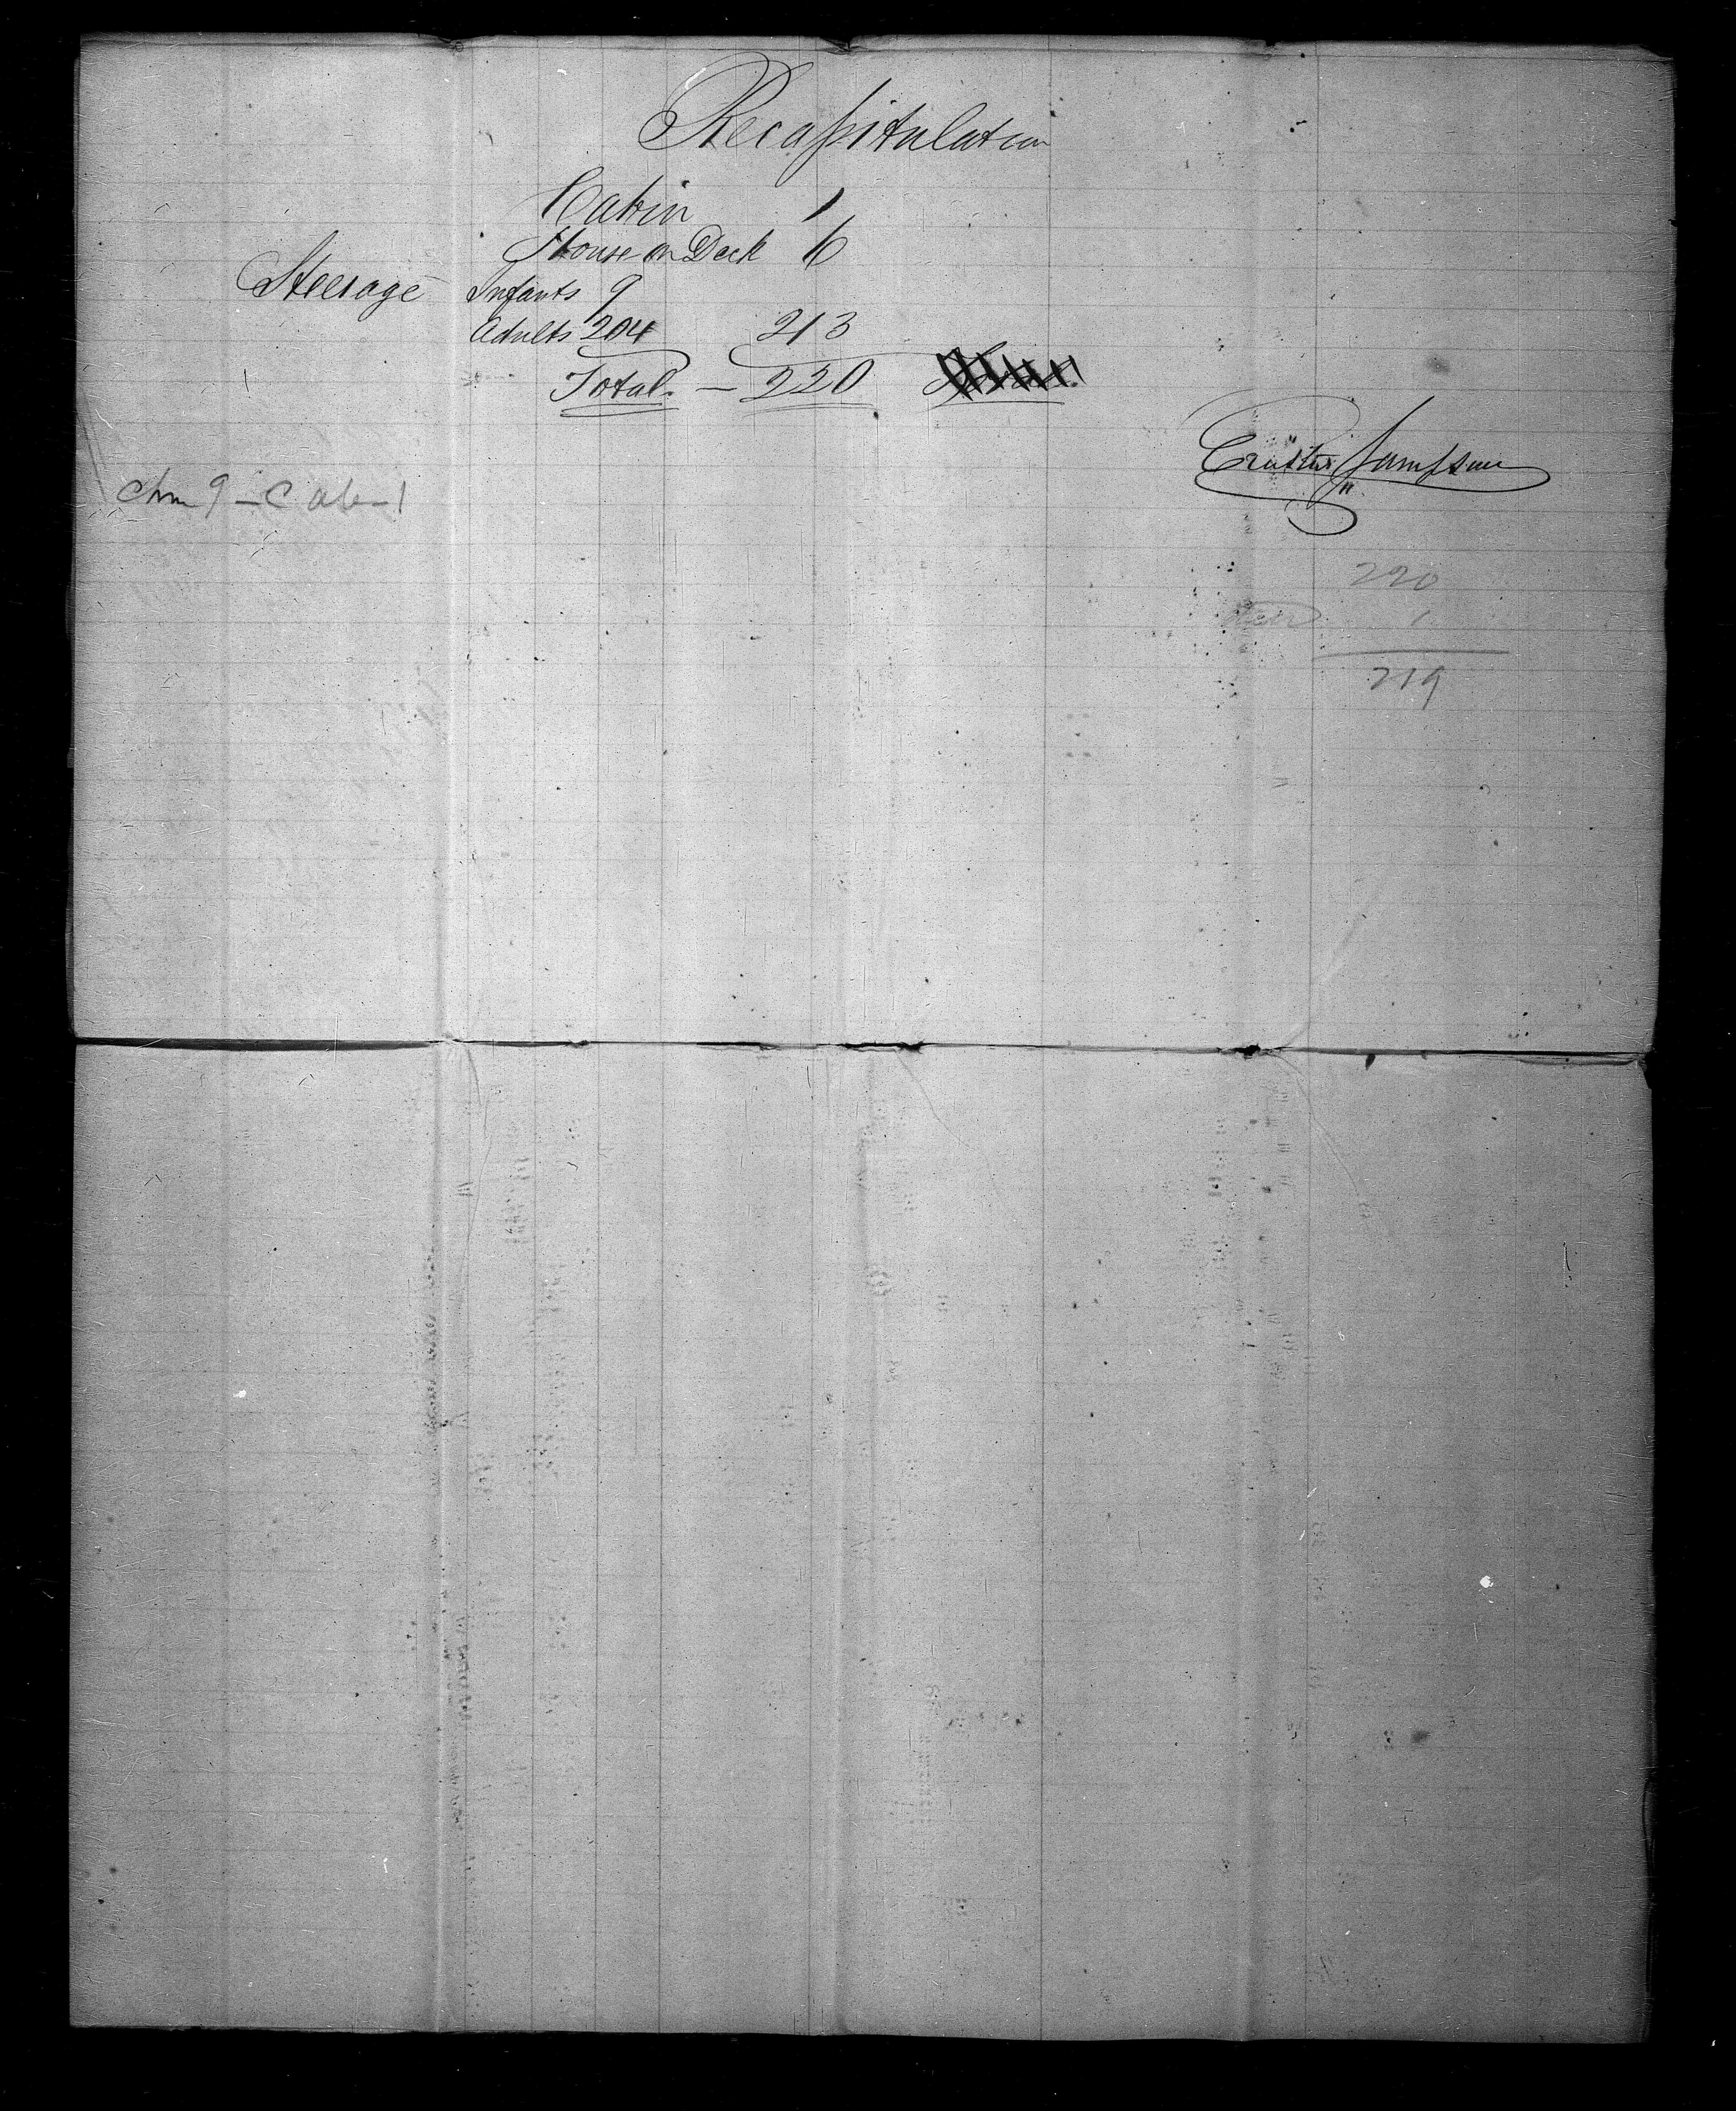 Recapitulation
Cabin 1
House on Deck 6
Steerage Infants 9
Adults 204 213
Total — 220
Erastus Sampson
9 - Cab - 1
220
1
219